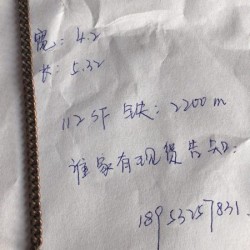 宽：4.2
长：5.32
112SF 铁：2200m
谁家有现货告知：
18953257831.